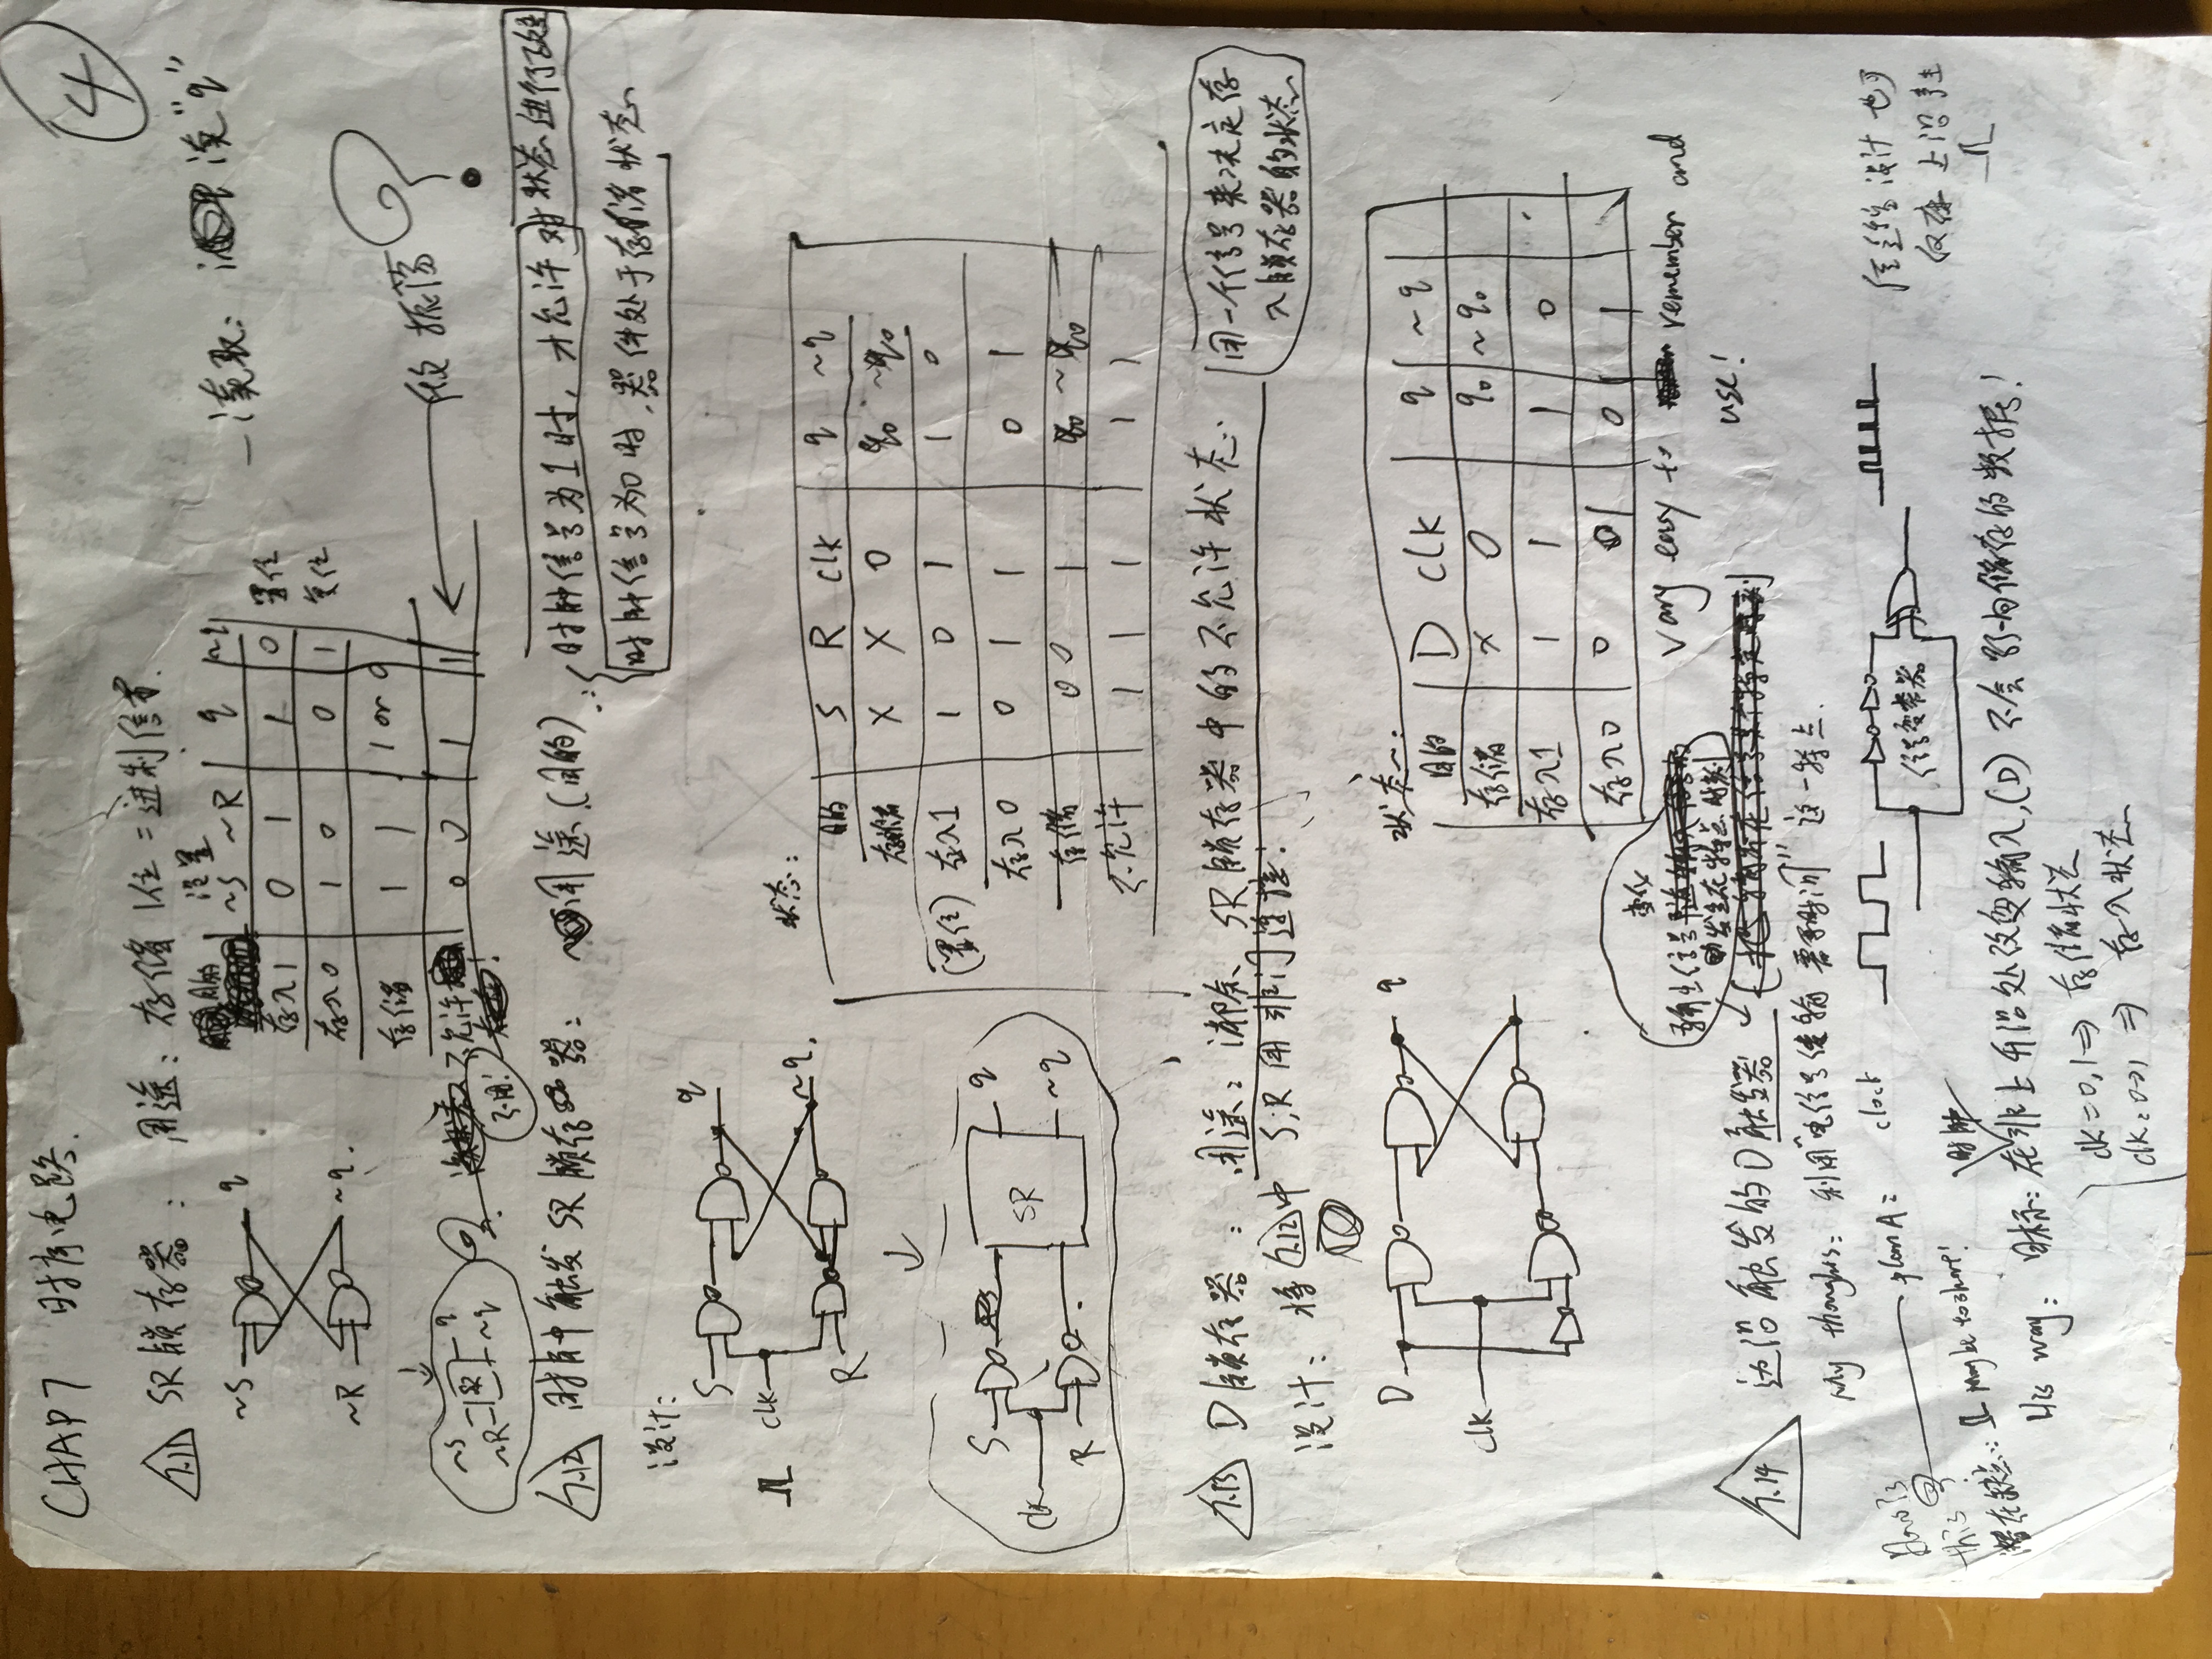 CHAP7 时序电路.
4
7.11 SR锁存器： 用途：存储1位二进制信息.
一读取： 读"q"
~S q
~R ~q.
目的 设置 ~S ~R q ~q
存入1 0 1 1 0 置位
存入0 1 0 0 1 复位
存储 1 1 1 or 0
不允许 0 0 1 1
不用!
振荡 ?
~S q
~R SR ~q
7.12 时钟触发SR锁存器： 用途(目的)：
时钟信号为1时，才允许对状态进行改变
时钟信号为0时，器件处于存储状态
设计：
S q
clk
R ~q.
S q
clk SR
R ~q
状态：
目的 S R clk q ~q
存储 X X 0 q₀ ~q₀
(置位) 存入1 1 0 1 1 0
存入0 0 1 1 0 1
存储 0 0 1 q₀ ~q₀
不允许 1 1 1 1 1
7.13 D锁存器： 用途：消除SR锁存器中的不允许状态
用一个信号来决定存
入锁存器的状态
设计：将7.12中S,R用非门连接!
D q
clk
状态：
目的 D clk q ~q
存储 x 0 q₀ ~q₀
存入1 1 1 1 0
存入0 0 1 0 1
Vary easy to remember and
use!
变化
输出信号
发生在特点时刻
7.14 边沿触发的D触发器
My thoughts: 利用"电信号传输需要时间"这一特点.
plan A: clock
信号变窄器
设计也可
仅在上沿产生
this?
潜在缺点： Maybe to short!
时钟
His way: 目标：在非上升沿处改变输入,(D)不会影响储存的数据!
clk=0,1⇒ 存储状态
clk: 0→1 ⇒ 存入状态